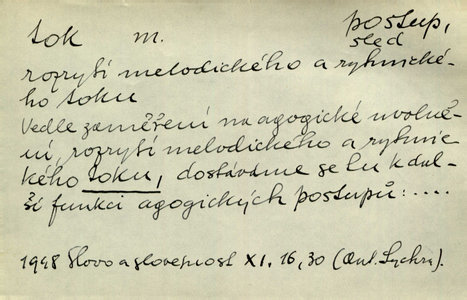 tok m. postup,
sled
rozrytí melodického a rytmické-
ho toku
Vedle zaměření na agogické uvolně-
ní, rozrytí melodického a rytmic
kého toku, dostáváme se tu k dal-
ší funkci agogických postupů: ....
1948 Slovo a slovesnost XI. 16, 30 (Ant. Sychra).